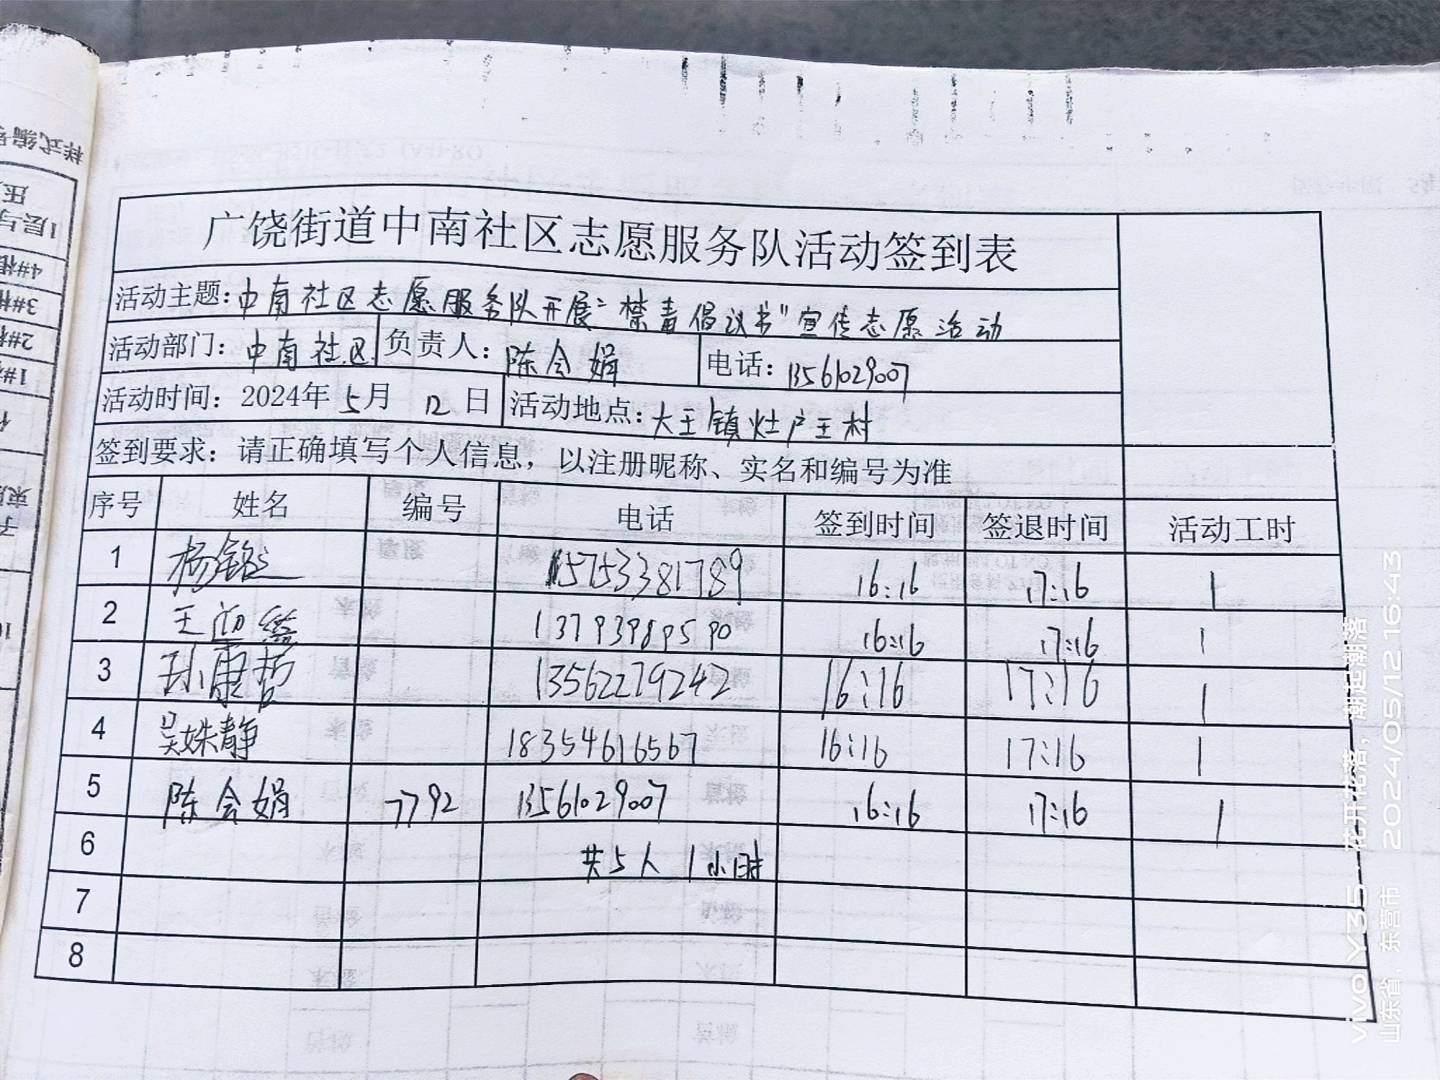 广饶街道中南社区志愿服务队活动签到表
活动主题：中南社区志愿服务队开展“禁毒倡议书”宣传志愿活动
活动部门：中南社区 负责人：陈令娟 电话：13561029007
活动时间：2024年5月12日 活动地点：大王镇灶户王村
签到要求：请正确填写个人信息，以注册昵称、实名和编号为准
序号 姓名 编号 电话 签到时间 签退时间 活动工时
1 杨 15753381789 16:16 17:16 1
2 王 13793989590 16:16 17:16 1
3 孙康哲 13562279242 16:16 17:16 1
4 吴姝静 18354616567 16:16 17:16 1
5 陈令娟 7792 13561029007 16:16 17:16 1
6 共5人 1小时
7
8
样式编号
压
1层与
4#
3#
2#
1#
vivo Y35·花开花落，潮起潮落
山东省，东营市 2024/05/12 16:43